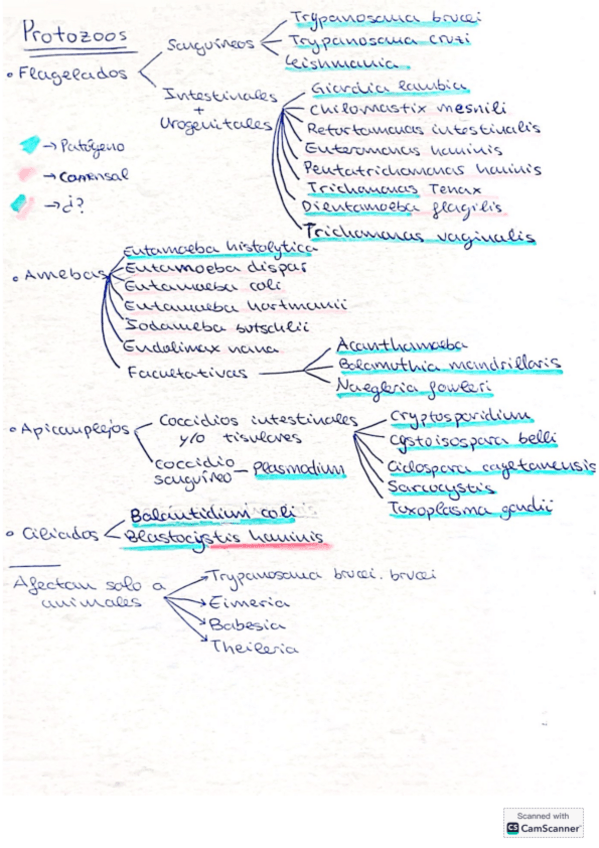 Protozoos
• Flagelados
Sanguíneos
Trypanosoma brucei
Trypanosoma cruzi
Leishmania
Intestinales
+
Urogenitales
Giardia lambia
Chilomastix mesnili
Retortamonas intestinalis
Enteromonas hominis
Pentatrichomonas hominis
Trichomonas Tenax
Dientamoeba flagilis
Trichomonas vaginalis
→ Patógeno
→ comensal
→ ¿?
• Amebas
Entamoeba histolytica
Entamoeba dispar
Entamoeba coli
Entamoeba hartmanii
Iodameba butschlii
Endolimax nana
Facultativas
Acanthamoeba
Balamuthia mandrillaris
Naegleria fowleri
• Apicomplejos
Coccidios intestinales
y/o tisulares
Cryptosporidium
Cystoisospora belli
Ciclospora cayetanensis
Sarcocystis
Toxoplasma gondii
coccidio
sanguíneo — Plasmodium
• Ciliados
Balantidium coli
Blastocystis hominis
Afectan solo a
animales
Trypanosoma brucei. brucei
Eimeria
Babesia
Theileria
Scanned with
CS CamScanner